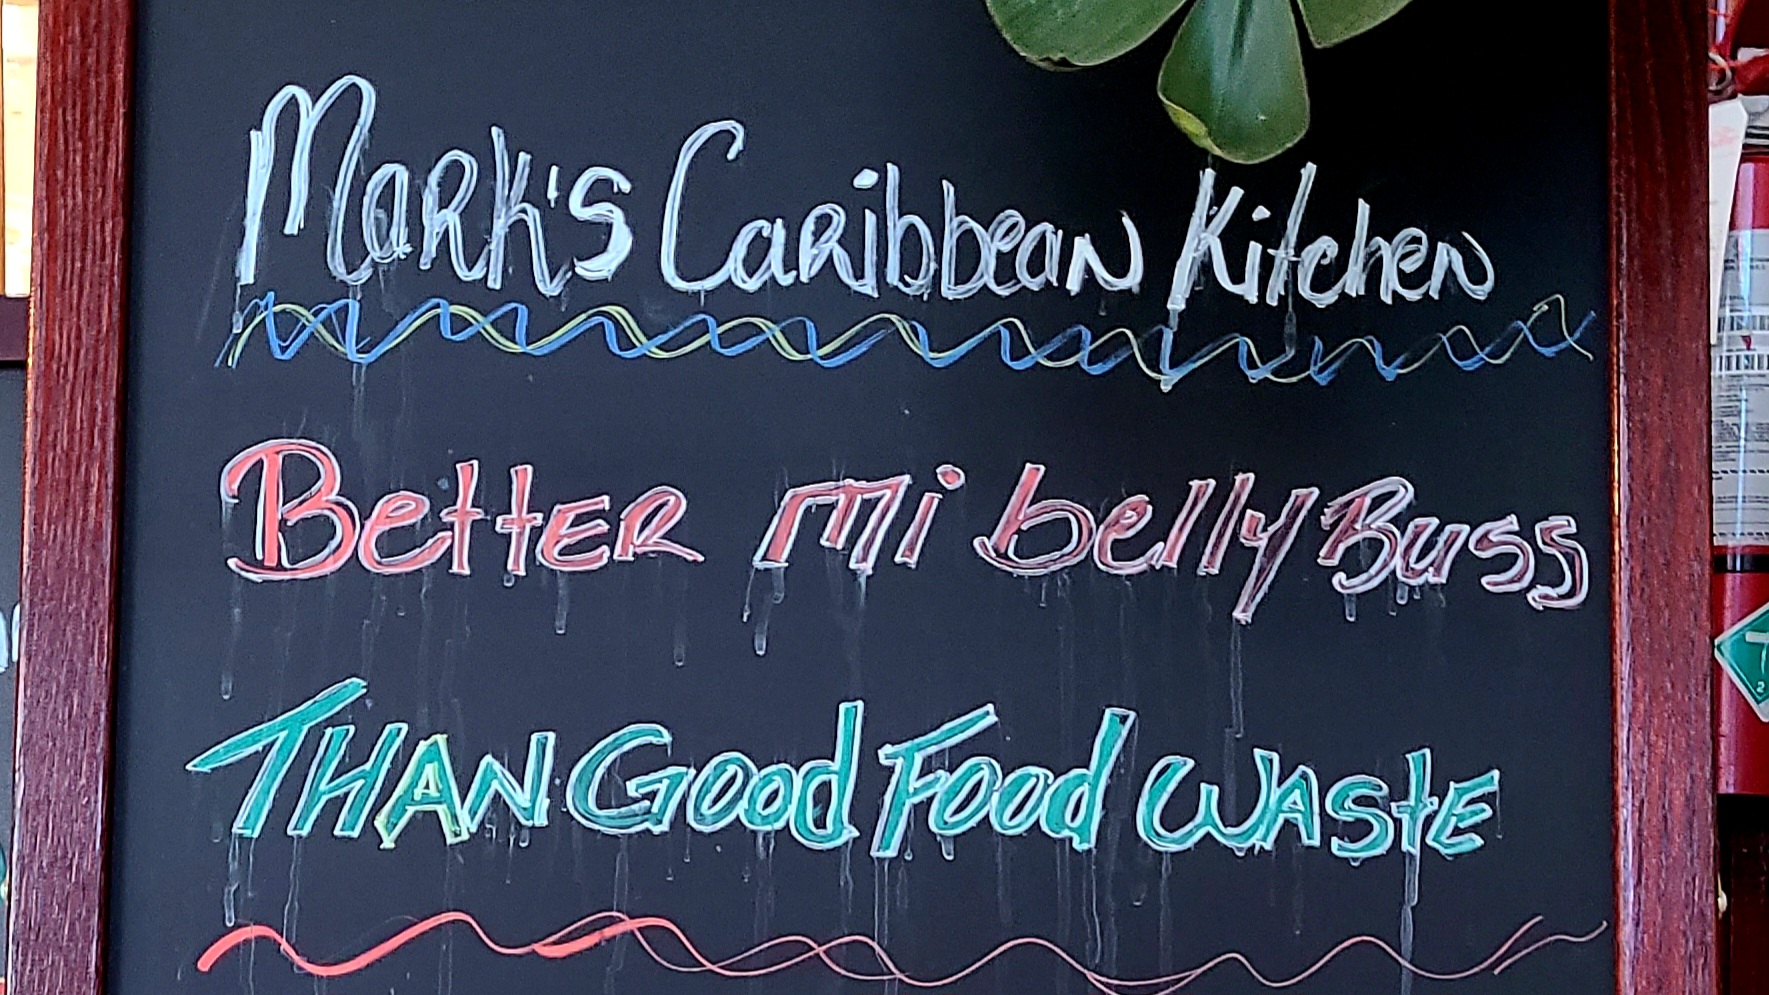 Mark's Caribbean Kitchen
Better mi belly Buss
THAN Good Food WASTE